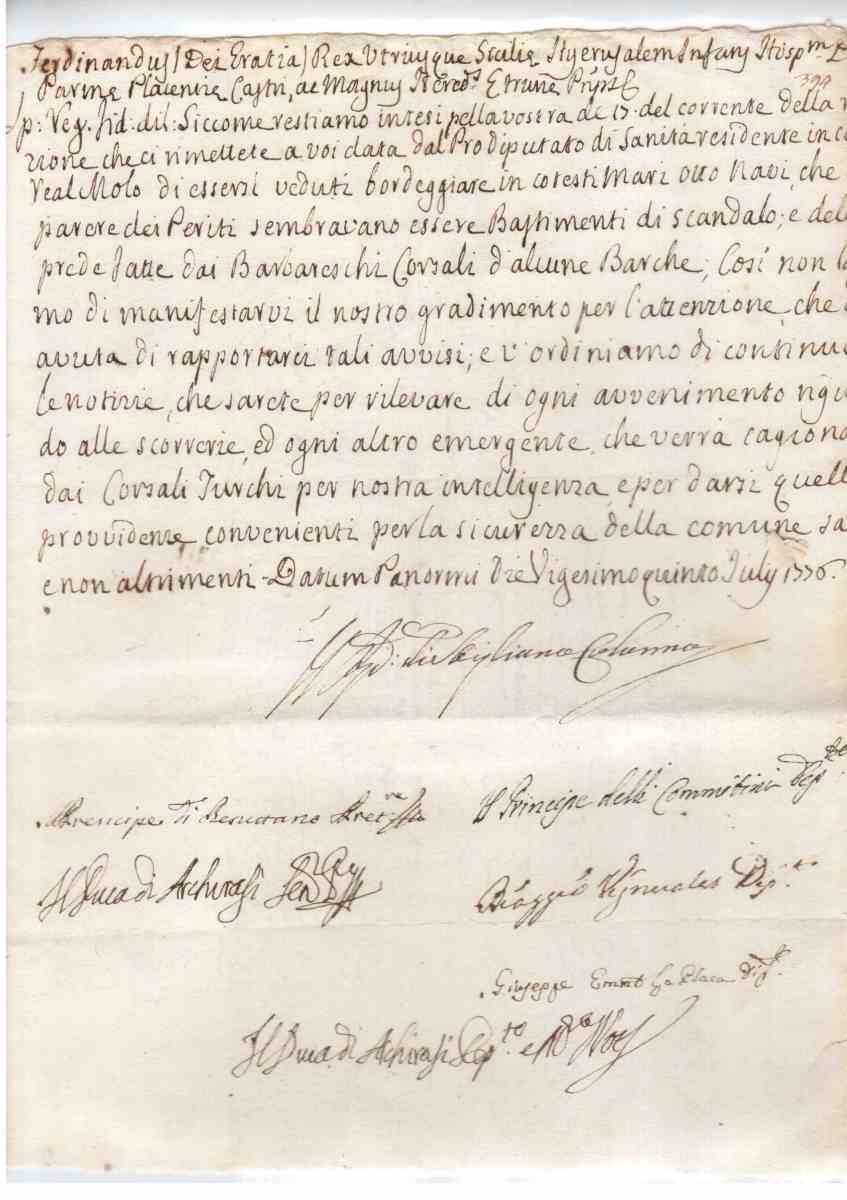 Ferdinandus (Dei Gratia) Rex Utriusque Sicilie Hyerusalem Infans Hisp.m
Parme Placentie Castri, ac Magnus Hered.s Etrurie Prps &
399
Sp: Reg. fid: dil: Siccome restiamo intesi pella vostra de 17. del corrente della
zione che ci rimettete a voi data dal Prodiputato di Sanità residente in co
Real Molo di essersi veduti bordeggiare in cotesti Mari Otto Navi, che
parere dei Periti sembravano essere Bastimenti di scandalo; e del
prede fatte dai Barbareschi Corsali d'alcune Barche; Così non
mo di manifestarvi il nostro gradimento per l'attenzione, che
avuta di rapportarci tali avvisi; e v'ordiniamo di continu
le notizie, che sarete per rilevare di ogni avvenimento rigu
do alle scorrerie, ed ogni altro emergente, che verrà cagiona
dai Corsali Turchi per nostra intelligenza e per darsi quell
provvidenze convenienti per la sicurezza della comune sa
e non altrimenti - Datum Panormi die Vigesimo quinto July 1776.
di Stigliano Colonna
Il Principe delli Commitini Dep.to
Prencipe di Pret.re
Il Duca di Archirafi Sen.re
Dep.to
Giuseppe Eman.l La Placa Dip.
Il Duca di Archirafi Dep.to e